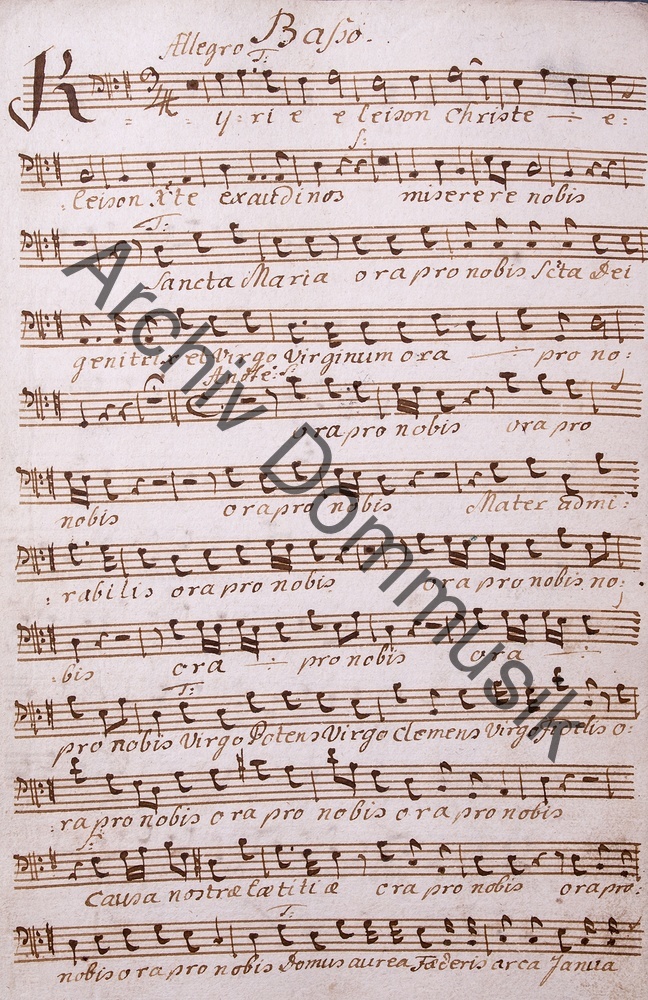 Basso.
Allegro T:
Ky: ri e e leison Christe e:
leison Xte exaudi nos miserere nobis
S:
T:
Sancta Maria ora pro nobis Scta Dei
genitrix et Virgo Virginum ora pro no:
S:
ora pro nobis ora pro
nobis ora pro nobis Mater admi:
rabilis ora pro nobis ora pro nobis no:
bis ora pro nobis ora
T:
pro nobis Virgo Potens Virgo Clemens Virgo fidelis o:
ra pro nobis ora pro nobis ora pro nobis
S:
Causa nostræ lætitiæ ora pro nobis ora pro:
T:
nobis ora pro nobis Domus aurea Fæderis arca Janua
Archiv Dommusik